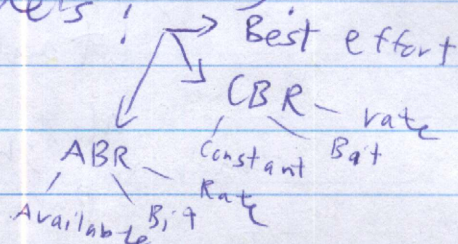 Best effort
CBR
rate
Constant Bit
ABR
Rate
Available Bit